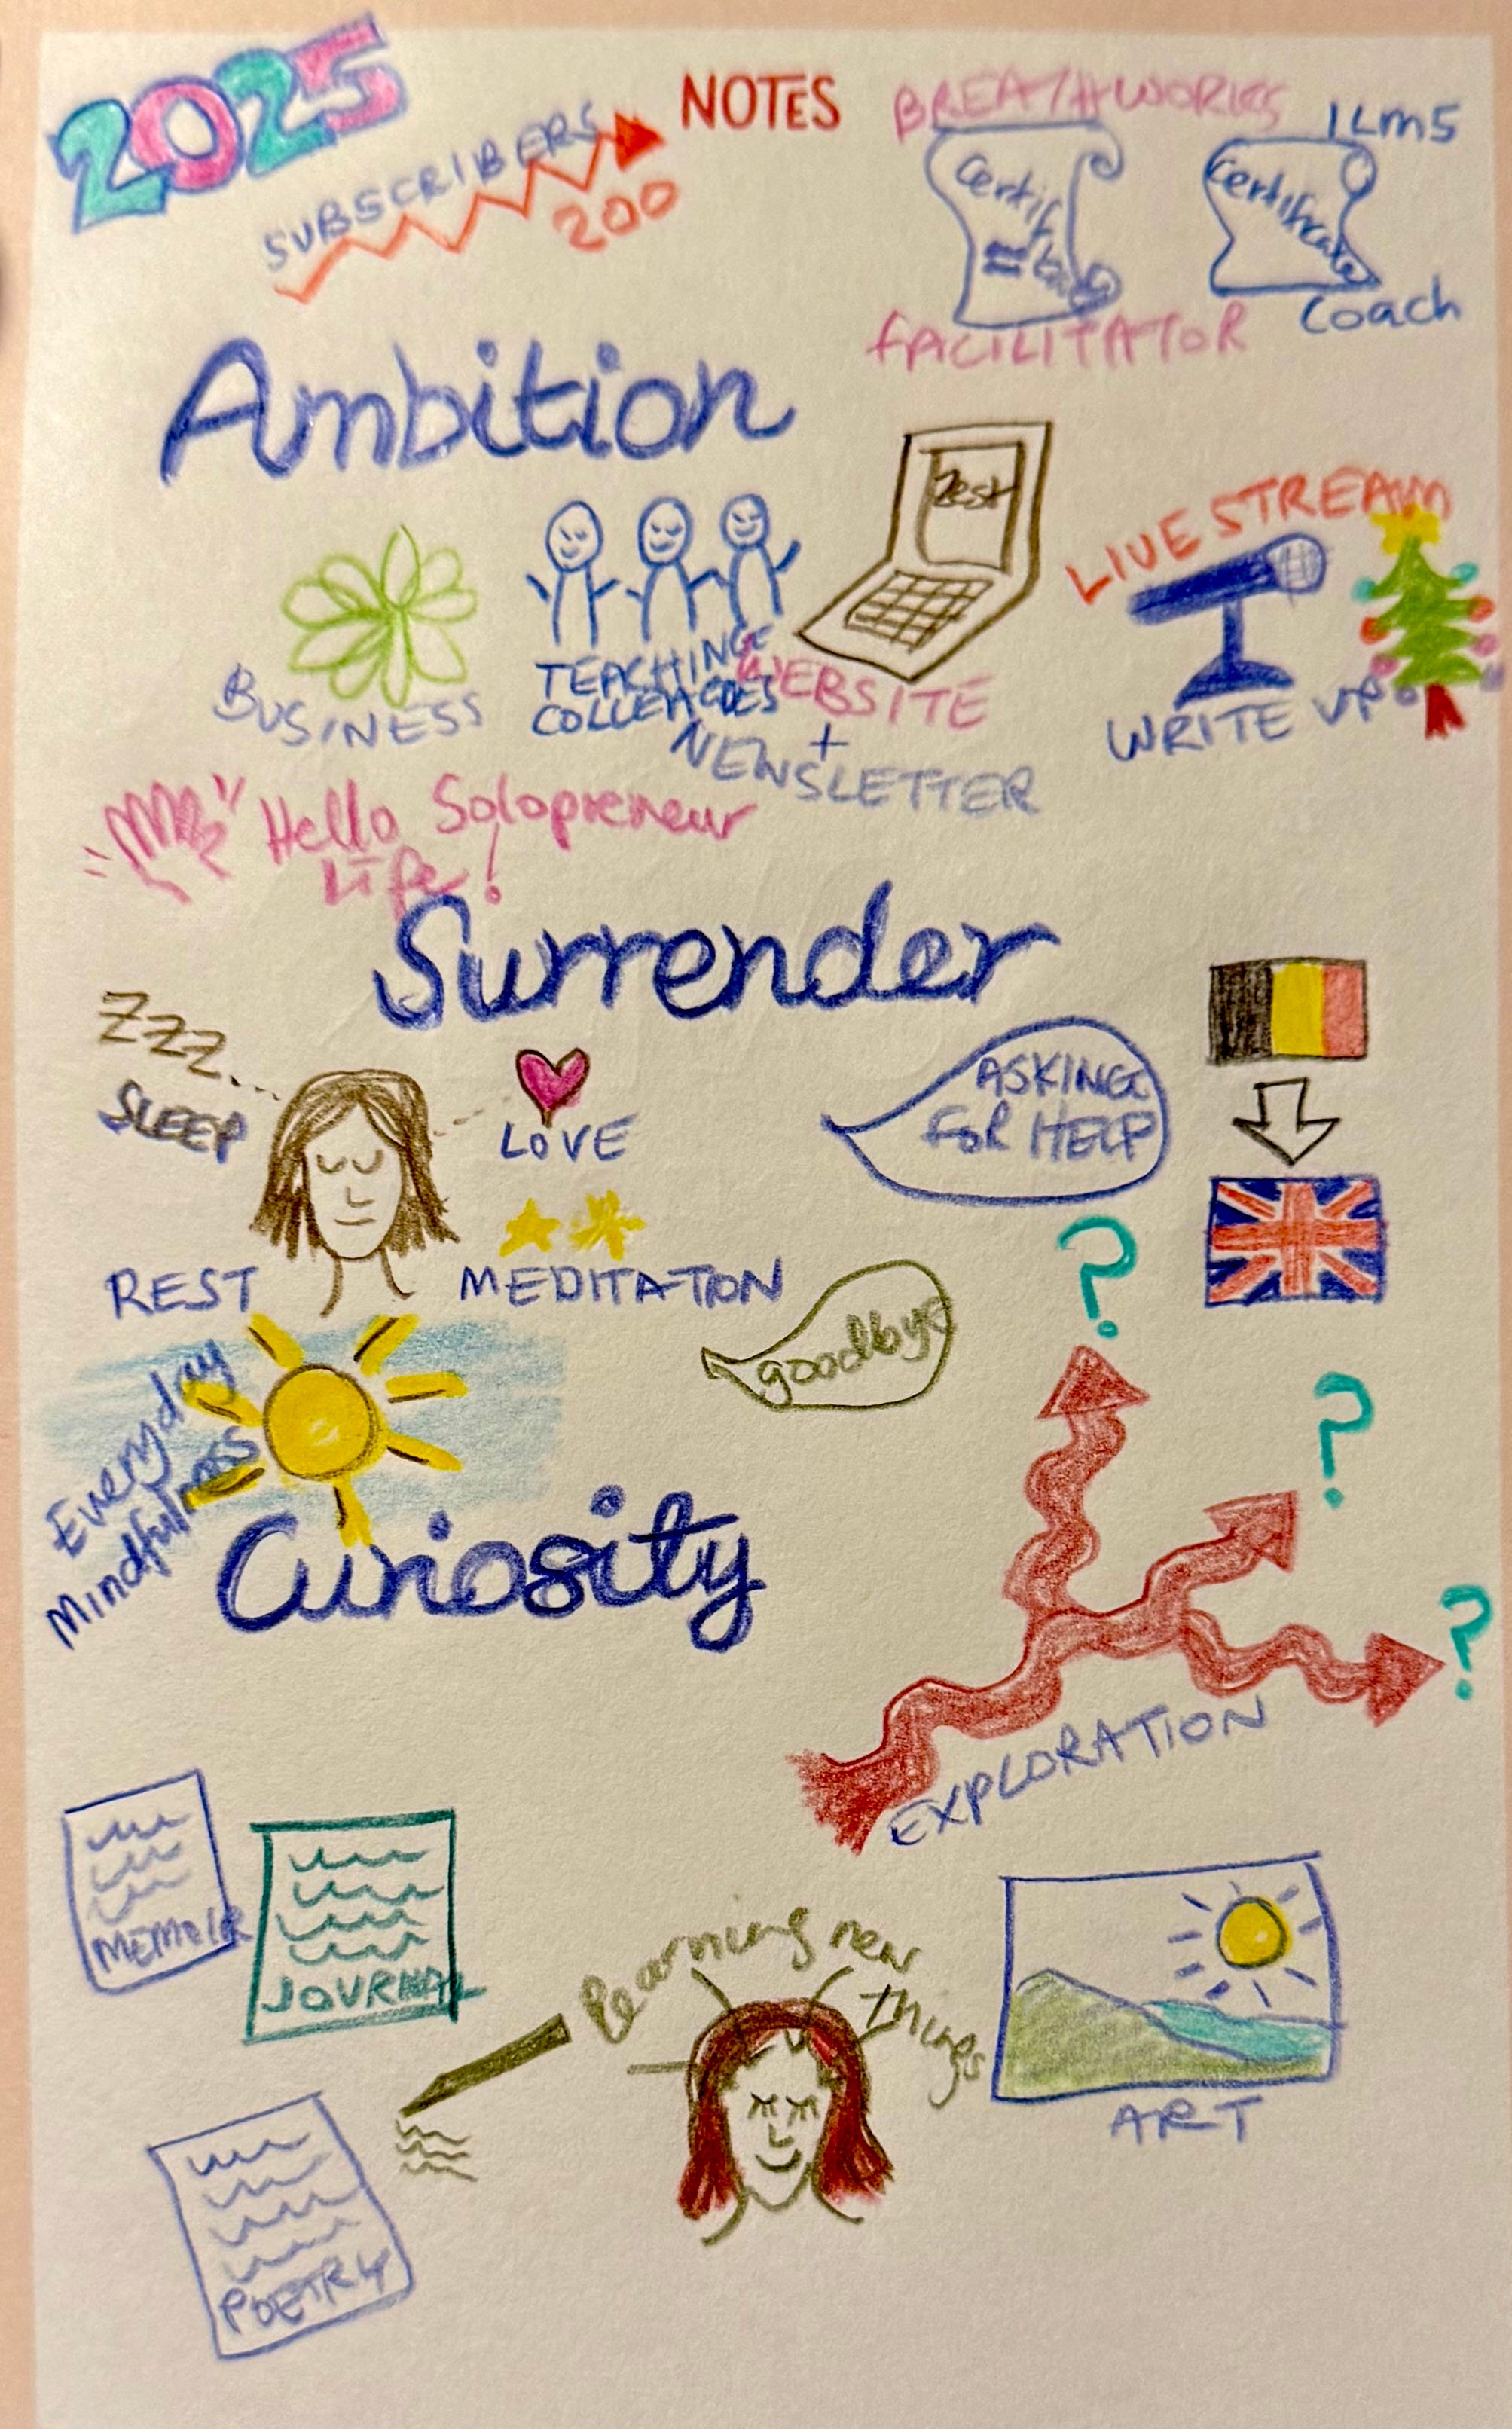 2025
SUBSCRIBERS
200
NOTES
BREATHWORKS
FACILITATOR
ILM5
Certificate
Coach
Ambition
BUSINESS
TEACHING
COLLEAGUES
Zest
WEBSITE
+
NEWSLETTER
LIVESTREAM
WRITE UP
Hello Solopreneur
Life!
Surrender
ZZZ...
SLEEP
LOVE
REST
MEDITATION
ASKING
FOR HELP
goodbye
Everyday
Mindfulness
Curiosity
?
?
?
EXPLORATION
MEMOIR
JOURNAL
POETRY
Learning new
Things
ART